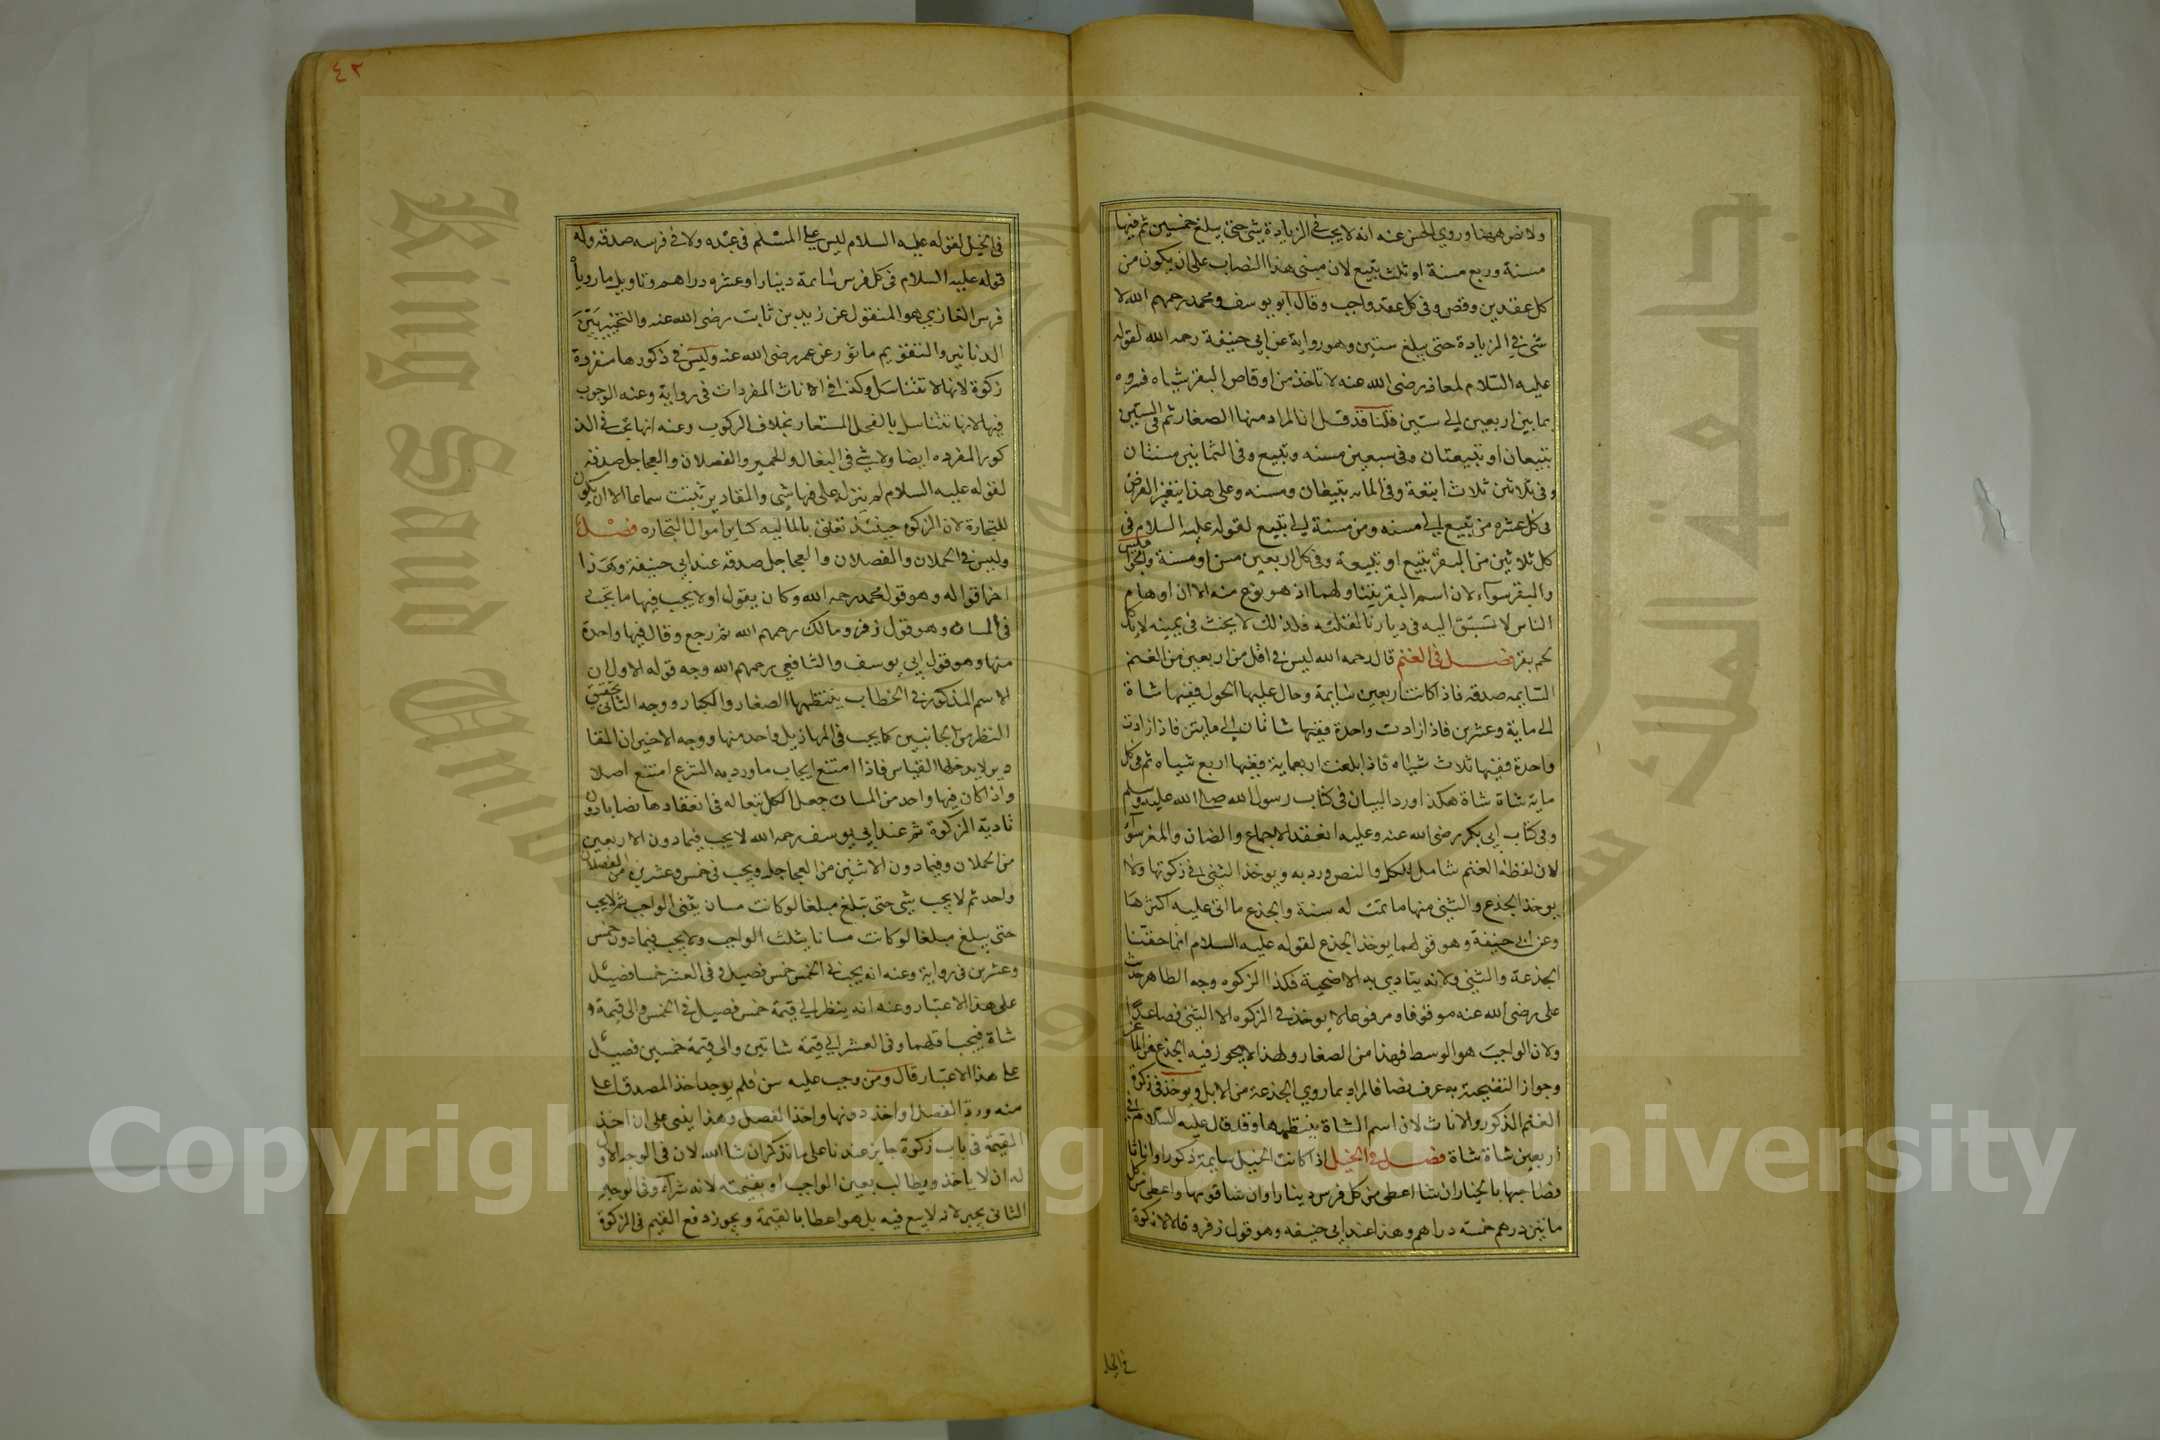 ولا نص ههنا وروي الحسن عنه انه لا يجب في الزيادة شي حتى يبلغ خمسين ثم فيها
مسنة وربع مسنة او ثلث تبيع لان مبنى هذا النصاب على ان يكون من
كل عقدين وقص وفي كل عقد واجب وقال ابو يوسف ومحمد رحمهم الله لا
شي في الزيادة حتى يبلغ ستين وهو رواية عن ابي حنيفة رحمه الله لقوله
عليه السلام لمعاذ رضى الله عنه لا تاخذ من اوقاص البقر شيا وفسروه
بما بين اربعين الى ستين قلنا قد قيل ان المراد منها الصغار ثم في الستين
تبيعان او تبيعتان وفي سبعين مسنه وتبيع وفي الثمانين مسنتان
وفي ثلاثين ثلاث اتبعة وفي المايه تبيعان ومسنه وعلى هذا يتغير الفرض
في كل عشره من تبيع الى مسنه ومن مسنة الى تبيع لقوله عليه السلام في
كل ثلاثين من البقر تبيع او تبيعة وفي كل اربعين مسن او مسنة والجواميس
والبقر سوآء لان اسم البقر يتناولهما اذ هو نوع منه الا ان اوهام
الناس لا تسبق اليه في ديارنا لقلته فلذلك لا يحنث في يمينه لا ياكل
لحم بقر فصل في الغنم قال رحمه الله ليس في اقل من اربعين من الغنم
السايمه صدقه فاذا كانت اربعين سايمة وحال عليها الحول ففيها شاة
الى ماية وعشرين فاذا زادت واحدة ففيها شاتان الى مايتين فاذا زادت
واحدة ففيها ثلاث شياه فاذا بلغت اربعماية ففيها اربع شياه ثم في كل
ماية شاة شاة هكذا ورد البيان في كتاب رسول الله صلى الله عليه وسلم
وفي كتاب ابي بكر رضى الله عنه وعليه انعقد الاجماع والضان والمعز سوآ
لان لفظة الغنم شامل للكل والنص ورد به ويوخذ الثني في زكوتها ولا
يوخذ الجذع والثني منها ما تمت له سنة والجذع ما اتى عليه اكثرها
وعن ابي حنيفة وهو قولهما يوخذ الجذع لقوله عليه السلام انما حقنا
الجذعة والثني ولانه يتادي به الاضحية فكذا الزكوه وجه الظاهر حديث
على رضى الله عنه موقوفا ومرفوعا لا يوخذ في الزكوه الا الثني فصاعدا
ولان الواجب هو الوسط فهذا من الصغار ولهذا لا يجوز فيه الجذع من المعز
وجواز التضحية به عرف نصا فالمراد بما روي الجذعة من الابل ويوخذ في زكوة
الغنم الذكور والاناث لان اسم الشاة ينتظمها وقد قال عليه السلام في
اربعين شاة شاة فصل في الخيل اذا كانت الخيل سايمة ذكورا واناثا
فصاحبها بالخيار ان شا اعطى من كل فرس دينارا وان شا قومها واعطى من كل
مائتين درهم خمسة دراهم وهذا عند ابي حنيفه وهو قول زفر وقالا لا زكوة
في الخيل
٤٢
في الخيل لقوله عليه السلام ليس على المسلم في عبده ولا في فرسه صدقه وله
قوله عليه السلام في كل فرس سايمة دينار او عشره دراهم وتاويل ما روياه
فرس الغازي هو المنقول عن زيد بن ثابت رضى الله عنه والتخيير بين
الدنانير والتقويم ماثور عن عمر رضى الله عنه وليس في ذكورها منفردة
زكوة لانها لا تتناسل وكذا في الاناث المفردات في رواية وعنه الوجوب
فيها لانها تتناسل بالفحل المستعار بخلاف الركوب وعنه انها تجب في الذ
كور المفرده ايضا ولا شي في البغال والحمير والفصلان والعجاجل صدقه
لقوله عليه السلام لم ينزل على فيها شي والمقادير تثبت سماعا الا ان يكون
للتجارة لان الزكوه حينئذ تعلق بالماليه كساير اموال التجاره فصل
وليس في الحملان والفصلان والعجاجل صدقه عند ابي حنيفة وهذا
اخر اقواله وهو قول محمد رحمه الله وكان يقول اولا يجب فيها ما يجب
في المسان وهو قول زفر ومالك رحمهم الله ثم رجع وقال فيها واحدة
منها وهو قول ابي يوسف والشافعي رحمهم الله وجه قوله الاول ان
الاسم المذكور في الخطاب ينتظمها الصغار والكبار ووجه الثاني تحقيق
النظر من الجانبين كما يجب في المهازيل واحد منها ووجه الاخير ان المقا
دير لا يدخلها القياس فاذا امتنع ايجاب ما ورد به الشرع امتنع اصلا
واذا كان فيها واحد من المسان جعل الكل تبعا له في انعقادها نصابا دون
تادية الزكوة ثم عند ابي يوسف رحمه الله لا يجب فيما دون الاربعين
من الحملان وفيما دون الاثنين من العجاجل ويجب في خمس وعشرين من الفصلان
واحد ثم لا يجب شي حتى تبلغ مبلغا لو كانت مسان يثنى الواجب ثم لا يجب
حتى يبلغ مبلغا لو كانت مسانا يثلث الواجب ولا يجب فيما دون خمس
وعشرين في رواية وعنه انه يجب في الخمس خمس فصيل وفي العشر خمسا فصيل
على هذا الاعتبار وعنه انه ينظر الى قيمة خمس فصيل في الخمس والى قيمة و
شاة فيجب اقلهما وفي العشر الى قيمة شاتين والى قيمة خمسين فصيل
على هذا الاعتبار قال ومن وجب عليه سن فلم يوجد اخذ المصدق اعلى
منه ورد الفضل او اخذ دونها واخذ الفضل وهذا يبنى على ان اخذ
القيمة في باب زكوة جايز عندنا على ما نذكر ان شا الله لان في الوجه الاول
له ان لا ياخذ ويطالب بعين الواجب او بقيمته لانه شراء وفي الوجه
الثاني يجبر لانه لا بيع فيه بل هو اعطا بالقيمة ويجوز دفع القيم في الزكوة
Copyright © King Saud University
King Saud University
جامعة الملك سعود